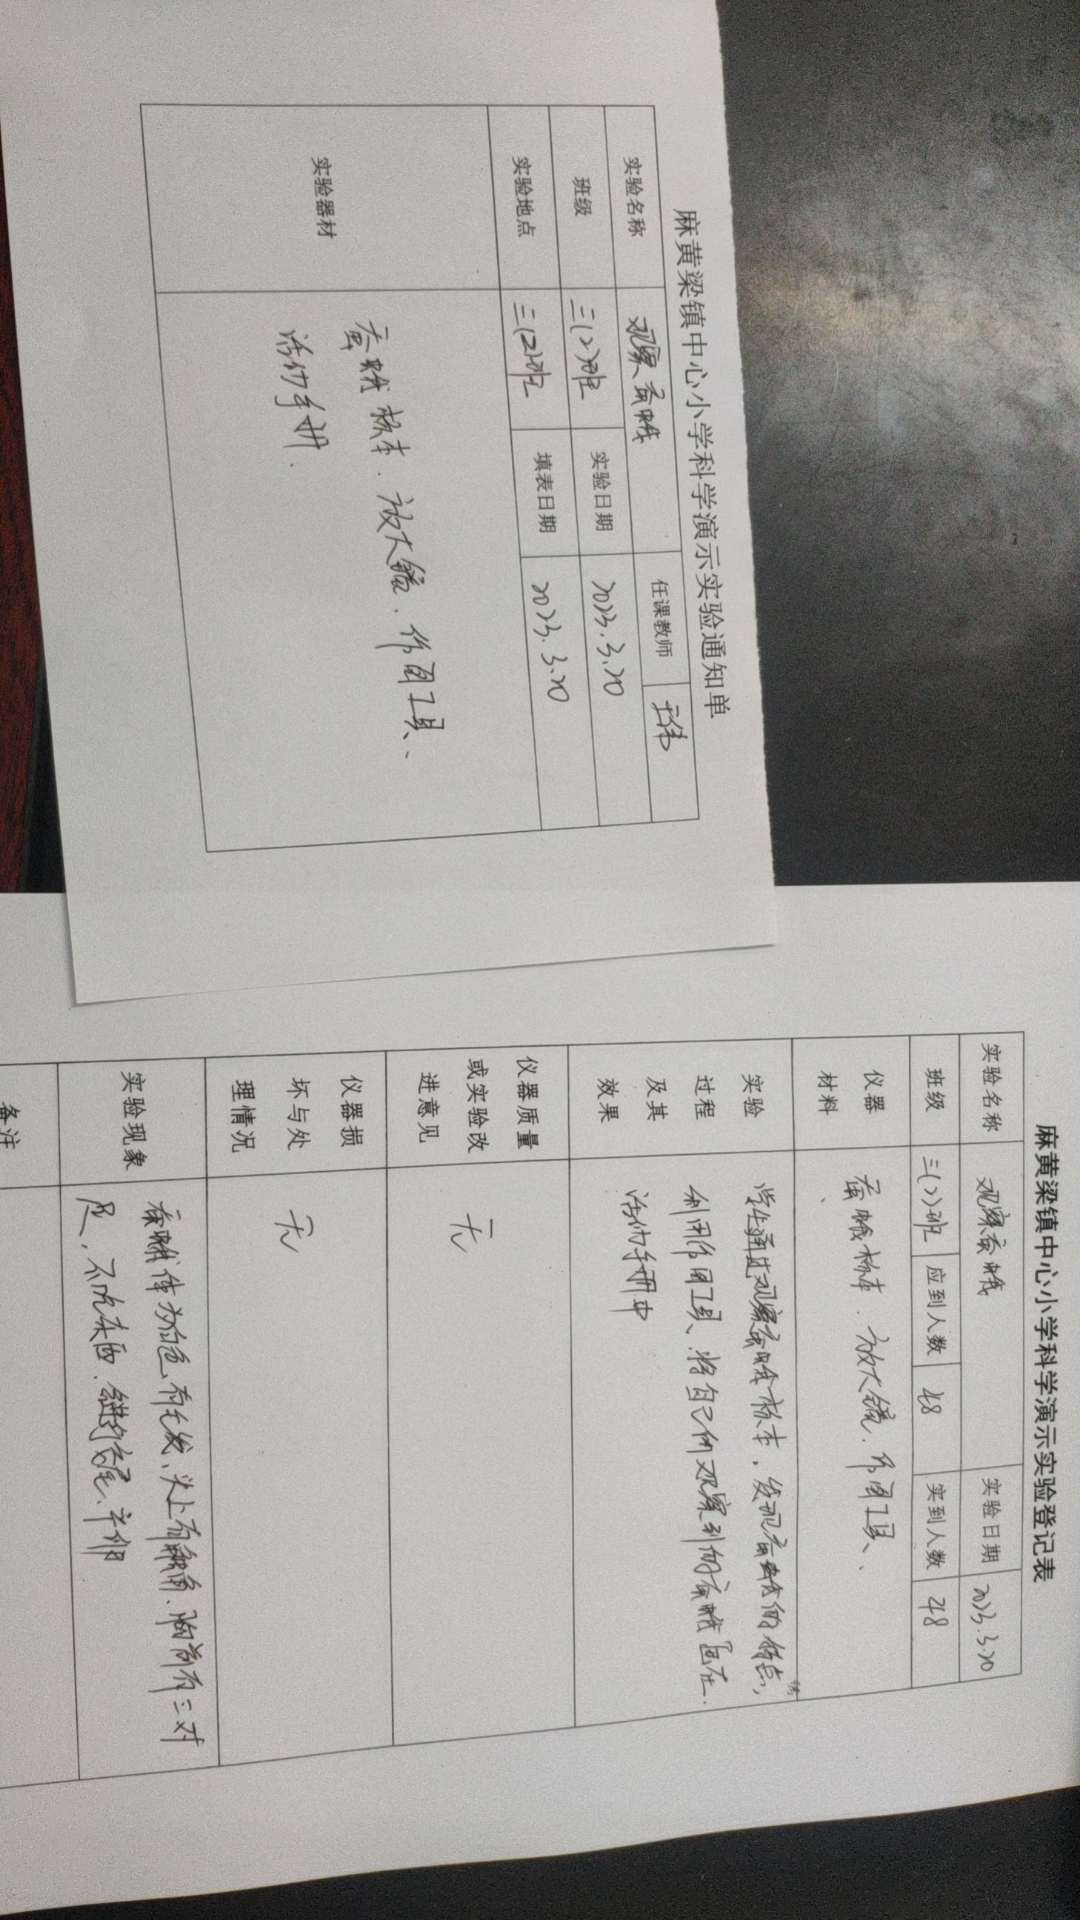 麻黄梁镇中心小学科学演示实验通知单
实验名称 观察蚕蛾 任课教师
班级 三(2)班 实验日期 2023.3.20
实验地点 三(2)班 填表日期 2023.3.20
实验器材 蚕蛾标本、放大镜、作图工具、
活动手册.
麻黄梁镇中心小学科学演示实验登记表
实验名称 观察蚕蛾 实验日期 2023.3.20
班级 三(2)班 应到人数 48 实到人数 48
仪器
材料
蚕蛾标本、放大镜、作图工具、
实验
过程
及其
效果
学生通过观察蚕蛾标本,发现蚕蛾的特点,
利用作图工具、将自己所观察到的蚕蛾画在
活动手册中
仪器质量
或实验改
进意见
无
仪器损
坏与处
理情况
无
实验现象
蚕蛾体为白色、有毛发、头上有触角、胸前有三对
足,不吃东西、
备注